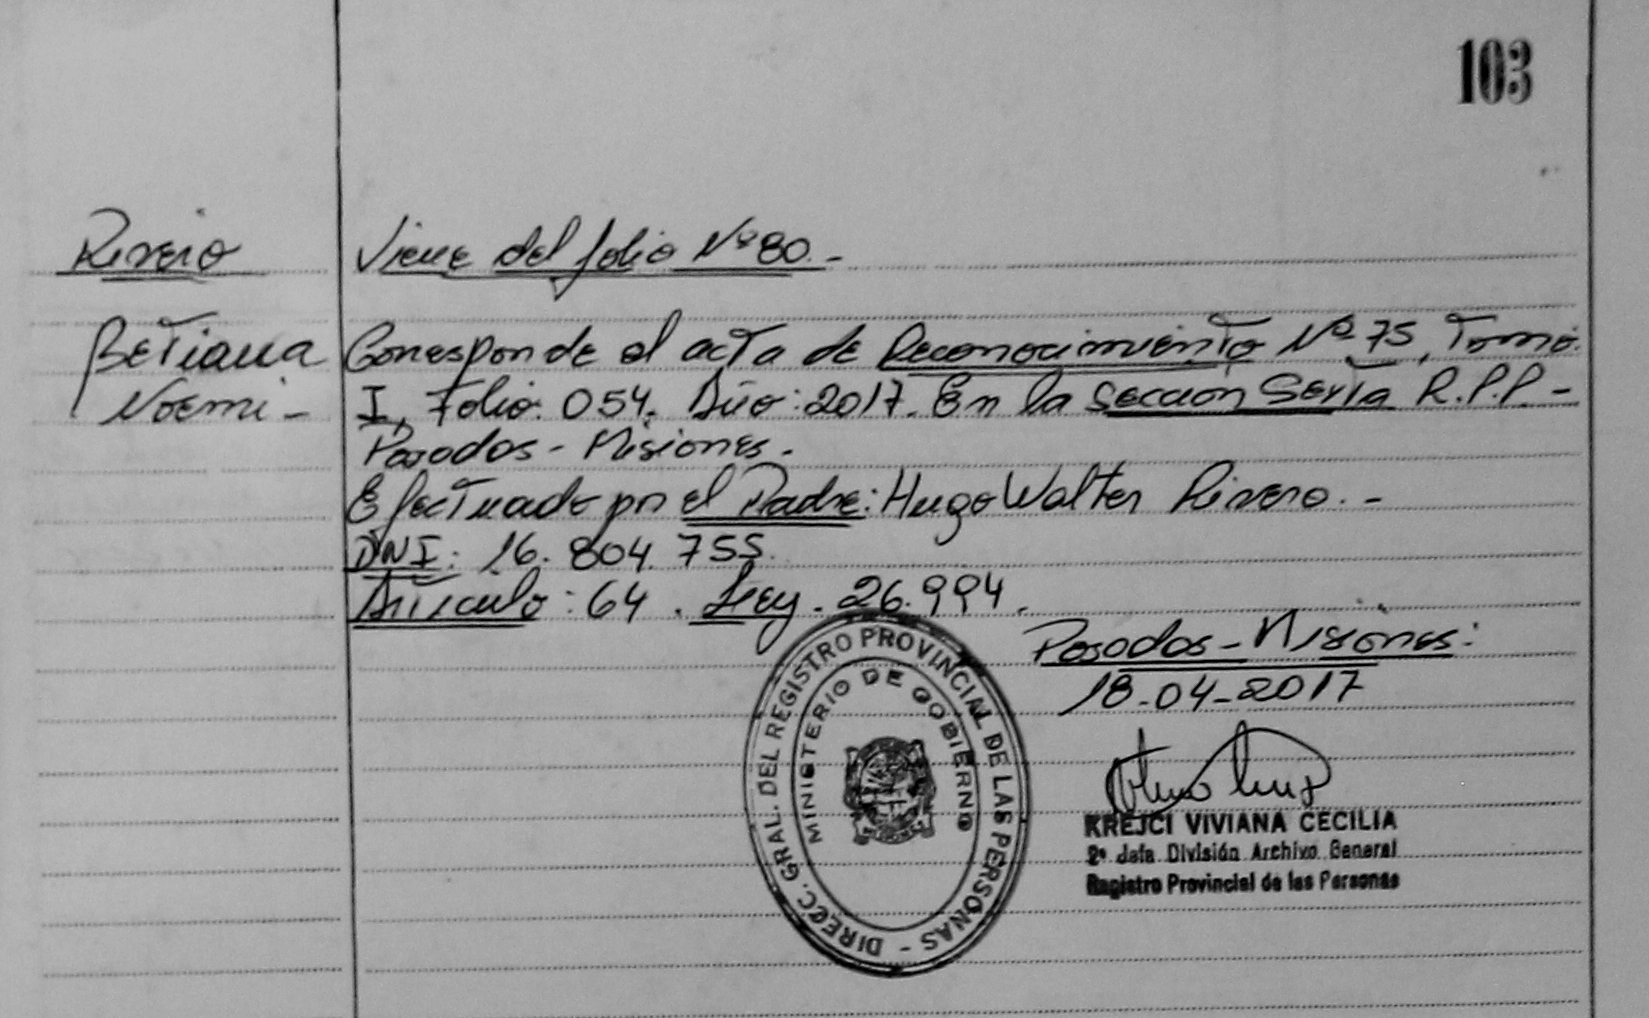 103
Rivero
Viene del folio Nº 80.-
Betiana
Noemi-
Corresponde al acta de Reconocimiento Nº 75, Tomo:
I, Folio: 054. Año: 2017. En la Sección Sexta R.P.P.-
Posadas - Misiones.
Efectuado por el Padre: Hugo Walter Rivero.-
DNI: 16.804.755.
Artículo: 64. Ley. 26.994.
Posadas - Misiones:
18-04-2017
DIRECC. GRAL. DEL REGISTRO PROVINCIAL DE LAS PERSONAS -
MINISTERIO DE GOBIERNO
KREJCI VIVIANA CECILIA
2º Jefa División Archivo General
Registro Provincial de las Personas